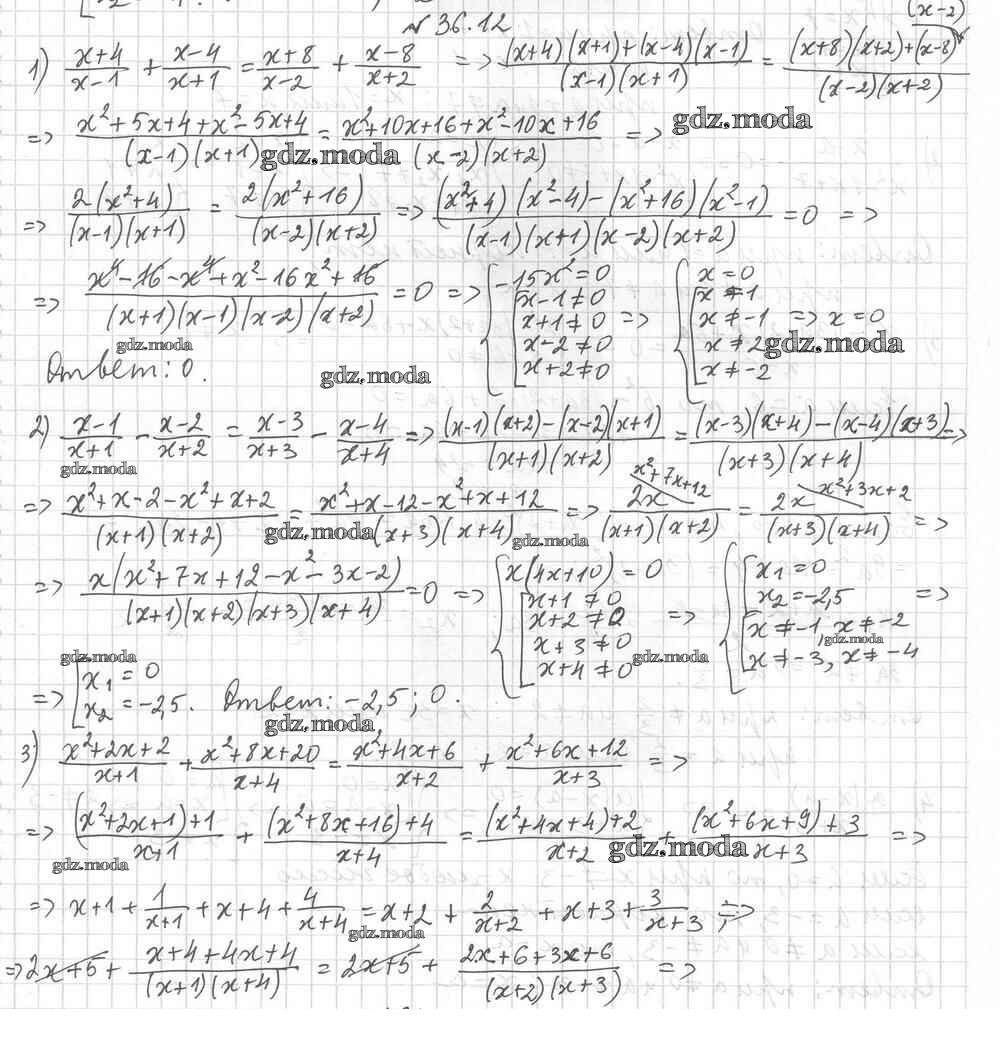 № 36.12
1) (x+4)/(x-1) + (x-4)/(x+1) = (x+8)/(x-2) + (x-8)/(x+2) => ((x+4)(x+1)+(x-4)(x-1))/((x-1)(x+1)) = ((x+8)(x+2)+(x-8)(x-2))/((x-2)(x+2))
=> (x²+5x+4+x²-5x+4)/((x-1)(x+1)) = (x²+10x+16+x²-10x+16)/((x-2)(x+2)) =>
gdz.moda
gdz.moda
=> 2(x²+4)/((x-1)(x+1)) = 2(x²+16)/((x-2)(x+2)) => ((x²+4)(x²-4)-(x²+16)(x²-1))/((x-1)(x+1)(x-2)(x+2)) = 0 =>
=> (x⁴-16-x⁴+x²-16x²+16)/((x+1)(x-1)(x-2)(x+2)) = 0 => { -15x²=0 [ x-1≠0 x+1≠0 x-2≠0 x+2≠0 => { x=0 [ x≠1 x≠-1 x≠2 x≠-2 => x=0
gdz.moda
gdz.moda
Ответ: 0.
gdz.moda
2) (x-1)/(x+1) - (x-2)/(x+2) = (x-3)/(x+3) - (x-4)/(x+4) => ((x-1)(x+2)-(x-2)(x+1))/((x+1)(x+2)) = ((x-3)(x+4)-(x-4)(x+3))/((x+3)(x+4)) =>
gdz.moda
=> (x²+x-2-x²+x+2)/((x+1)(x+2)) = (x²+x-12-x²+x+12)/((x+3)(x+4)) => 2x \ x²+7x+12 /((x+1)(x+2)) = 2x \ x²+3x+2 /((x+3)(x+4)) =>
gdz.moda
gdz.moda
=> x(x²+7x+12-x²-3x-2)/((x+1)(x+2)(x+3)(x+4)) = 0 => { x(4x+10)=0 [ x+1≠0 x+2≠0 x+3≠0 x+4≠0 => { [ x₁=0 x₂=-2,5 [ x≠-1, x≠-2 x≠-3, x≠-4 =>
gdz.moda
gdz.moda
gdz.moda
=> [ x₁=0 x₂=-2,5. Ответ: -2,5; 0.
gdz.moda
3) (x²+2x+2)/(x+1) + (x²+8x+20)/(x+4) = (x²+4x+6)/(x+2) + (x²+6x+12)/(x+3) =>
=> ((x²+2x+1)+1)/(x+1) + ((x²+8x+16)+4)/(x+4) = ((x²+4x+4)+2)/(x+2) + ((x²+6x+9)+3)/(x+3) =>
gdz.moda
gdz.moda
=> x+1+1/(x+1)+x+4+4/(x+4) = x+2+2/(x+2)+x+3+3/(x+3) =>
gdz.moda
=> 2x+5+(x+4+4x+4)/((x+1)(x+4)) = 2x+5+(2x+6+3x+6)/((x+2)(x+3)) =>